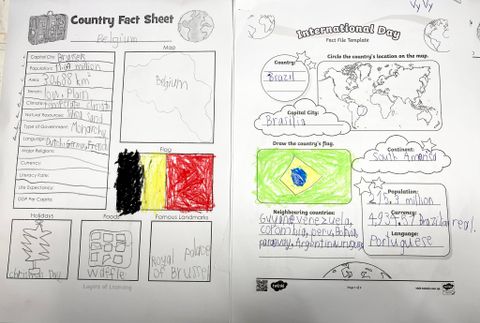 Vy Vy
Country Fact Sheet
Belgium
Capital City: Brussels
Population:
Area: 30688 km²
Terrain: low, Plain
Climate: temperate climate
Natural Resources: sand
Type of Government: Monarchy
Language: Dutch, German, French
Major Religions:
Currency:
Literacy Rate:
Life Expectancy:
GDP Per Capita:
Map
Belgium
Flag
Holidays
Foods
Famous Landmarks
christmas Day
waffle
Royal palace
of Brussel
Layers of Learning
International Day
Fact File Template
Country:
Brazil
Circle the country's location on the map.
Capital City:
Brasília
Continent:
South America
Draw the country's flag.
Population:
215,3 million
Currency:
4,931.57 Brazilian real.
Language:
Portuguese
Neighbouring countries:
Guyane, venezuela,
colombia, peru, Bolivia,
paraguay, Argentin, uruguay
twinkl